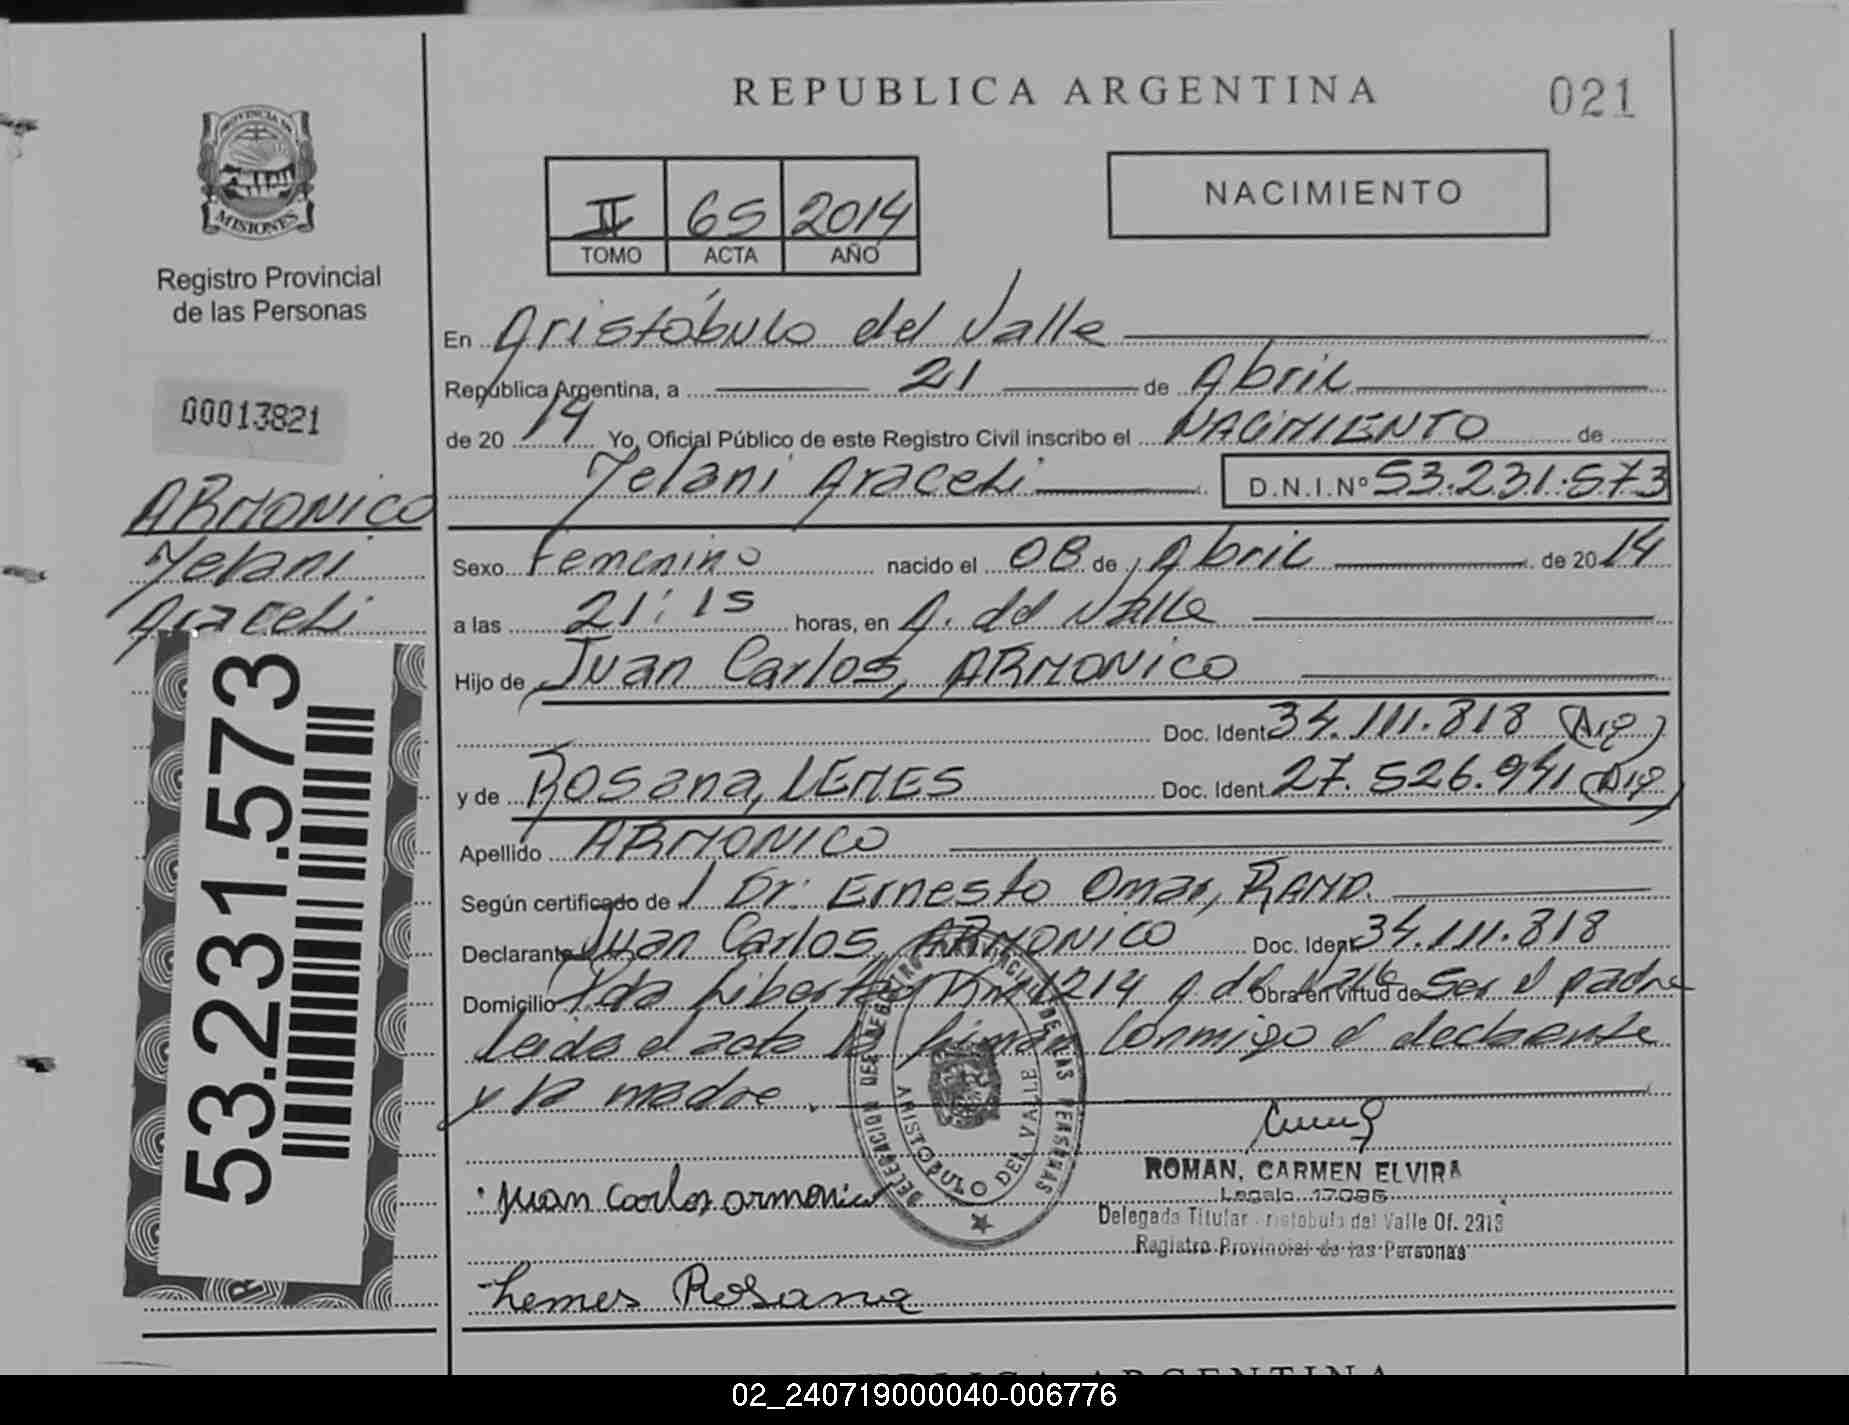 REPUBLICA ARGENTINA
021
PROVINCIA DE
MISIONES
Registro Provincial
de las Personas
00013821
ARMONICO
Yelani
Araceli
53.231.573
II 65 2014
TOMO ACTA AÑO
NACIMIENTO
En Aristóbulo del Valle
República Argentina, a 21 de Abril
de 20 14 Yo, Oficial Público de este Registro Civil inscribo el NACIMIENTO de
Yelani Araceli D.N.I.Nº 53.231.573
Sexo Femenino nacido el 08 de Abril de 20 14
a las 21:15 horas, en A. del Valle
Hijo de Juan Carlos, ARMONICO
Doc. Ident. 34.111.818 (Arg)
y de Rosana, LEMES Doc. Ident. 27.526.941 (Arg)
Apellido ARMONICO
Según certificado de / Dr: Ernesto Omar, RAMO.
Declarante Juan Carlos, ARMONICO Doc. Ident. 34.111.818
Domicilio Pda Libertad Km 1214 A del Valle Obra en virtud de Ser el padre
Leida el acta la firman Conmigo el declarante
y la madre
DELEGACION DEL REGISTRO PROVINCIAL DE LAS PERSONAS
ARISTOBULO DEL VALLE
ROMAN, CARMEN ELVIRA
Legajo 17096
Delegada Titular ristobulo del Valle Of. 2313
Registro Provincial de las Personas
Juan Carlos armonico
Lemes Rosana
REPUBLICA ARGENTINA
02_240719000040-006776